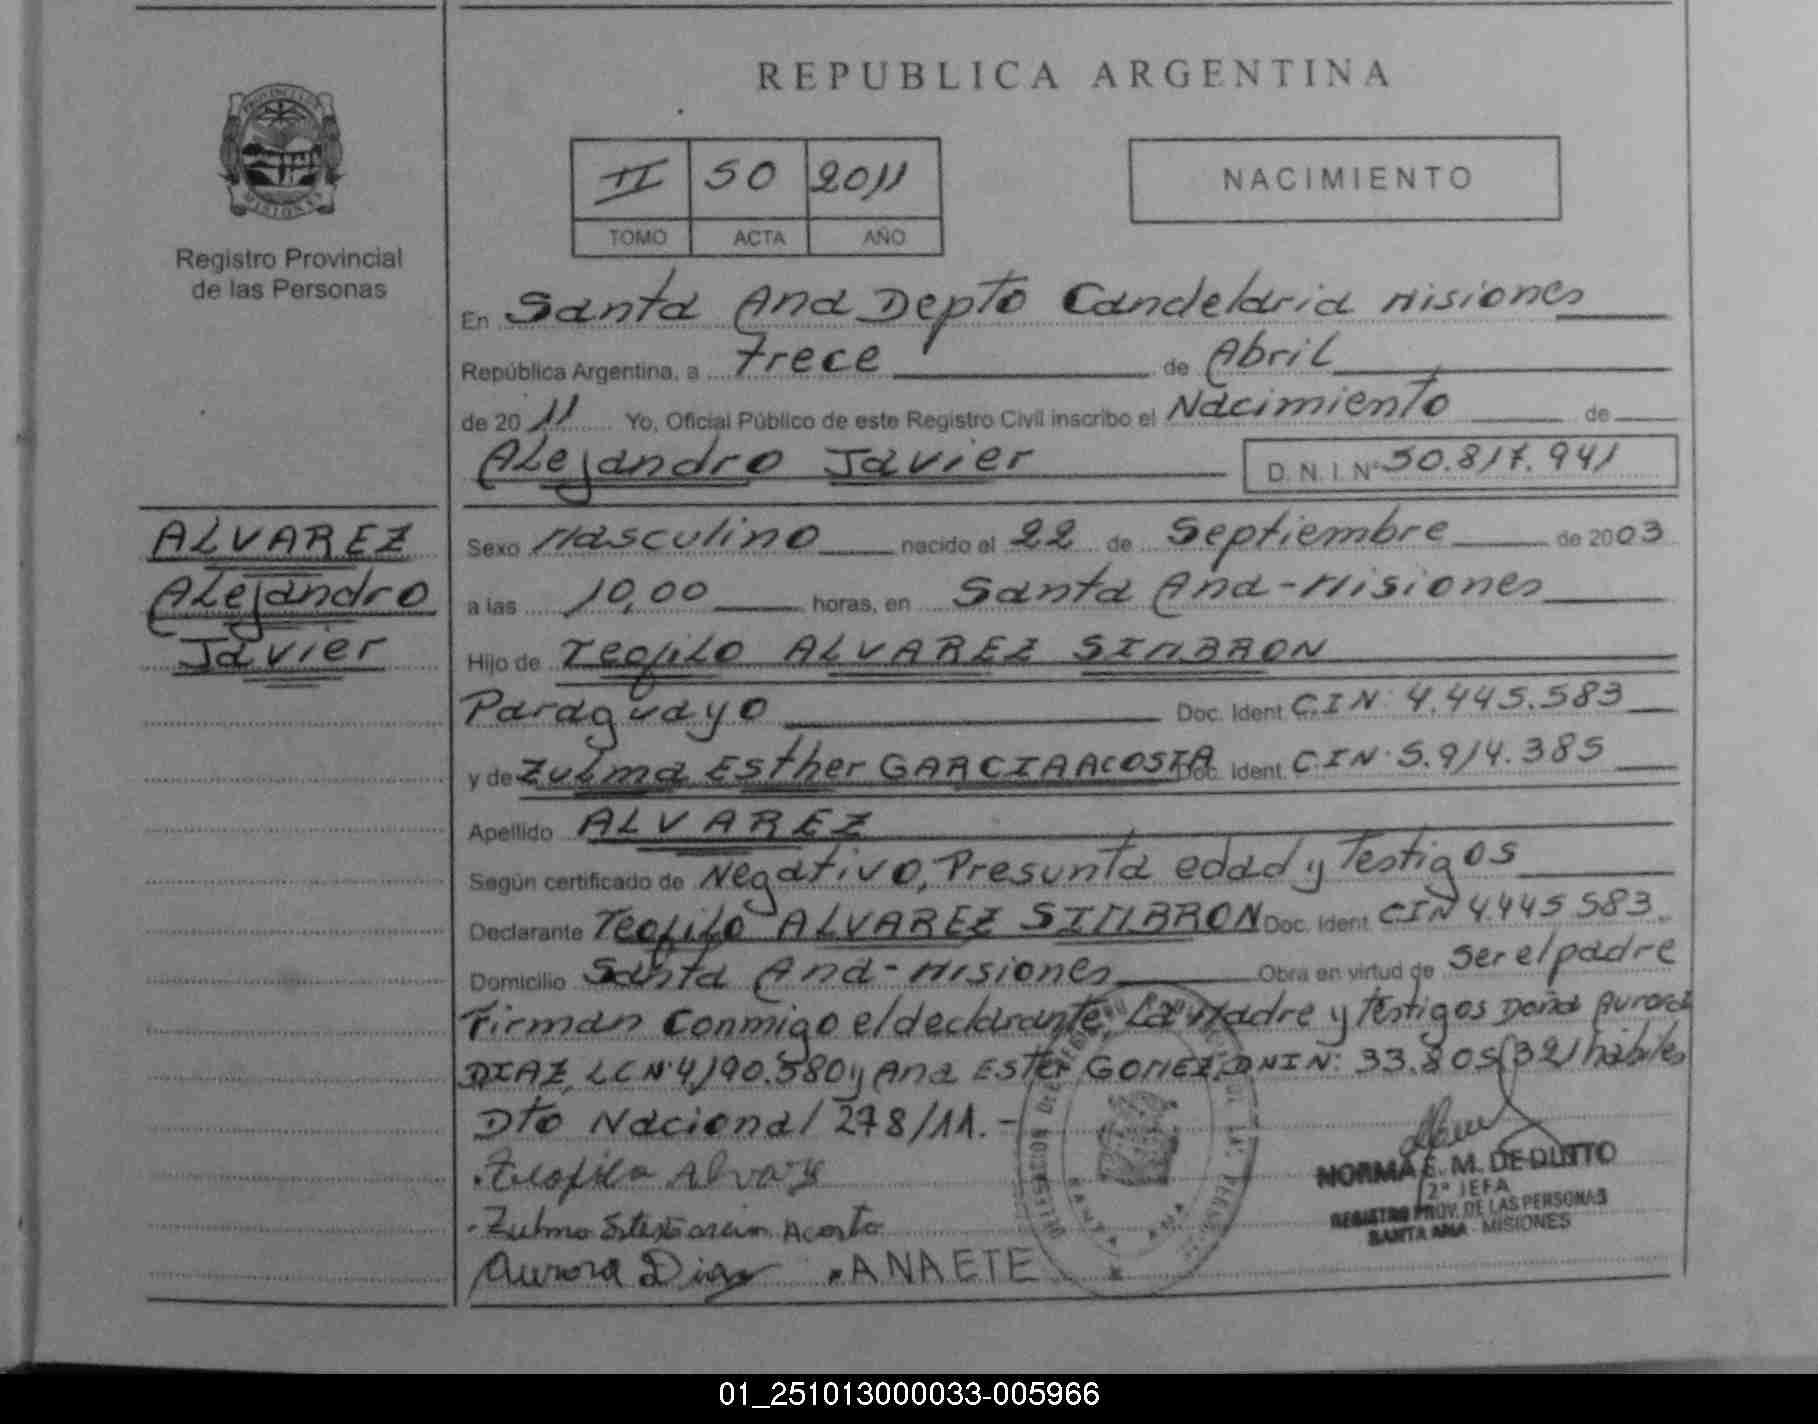 REPUBLICA ARGENTINA
PROVINCIA DE
MISIONES
Registro Provincial
de las Personas
II 50 2011
TOMO ACTA AÑO
NACIMIENTO
En Santa Ana Depto Candelaria Misiones
República Argentina, a Trece de Abril
de 2011 Yo, Oficial Público de este Registro Civil inscribo el Nacimiento de
Alejandro Javier D. N. I. Nº 50.817.941
ALVAREZ
Alejandro
Javier
Sexo Masculino nacido el 22 de Septiembre de 2003
a las 10,00 horas, en Santa Ana-Misiones
Hijo de Teofilo ALVAREZ SIMBRON
Paraguayo Doc. Ident. CIN: 4.445.583
y de Zulma Esther GARCIA ACOSTA Doc. Ident. CIN: 5.914.385
Apellido ALVAREZ
Según certificado de Negativo, Presunta edad y Testigos
Declarante Teofilo ALVAREZ SIMBRON Doc. Ident. CIN 4.445 583
Domicilio Santa Ana-Misiones Obra en virtud de ser el padre
Firman Conmigo el declarante, La Madre y Testigos Doña Aurora
DIAZ, LC Nº 4190.580 y Ana Ester GOMEZ, DNIN: 33.805 habiles
Dto Nacional 278/11.-
Teofilo Alvarez
Zulma Acosta
Aurora Diaz ANAETE
SANTA ANA
NORMA E. M. DE DUTTO
2ª JEFA
REGISTRO PROV. DE LAS PERSONAS
SANTA ANA - MISIONES
01_251013000033-005966